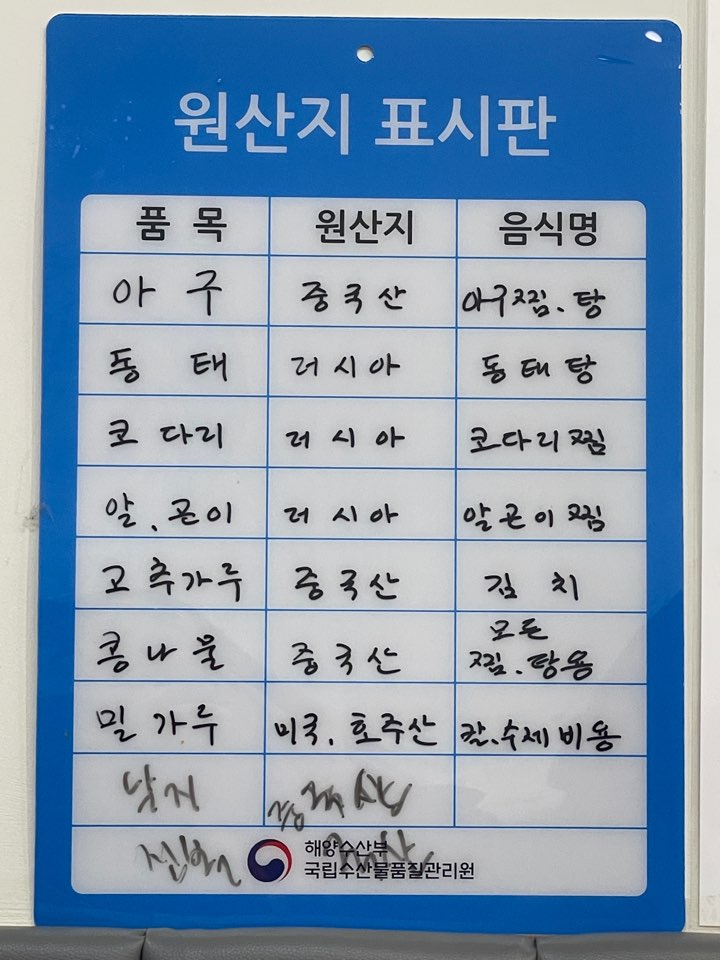 원산지 표시판
품 목 원산지 음식명
아 구 중국산 아구찜.탕
동 태 러시아 동태탕
코다리 러시아 코다리찜
알.곤이 러시아 알곤이찜
고추가루 중국산 김 치
콩나물 중국산 모든
찜.탕용
밀가루 미국.호주산 칼.수제비용
낙지 중국산
해양수산부
국립수산물품질관리원